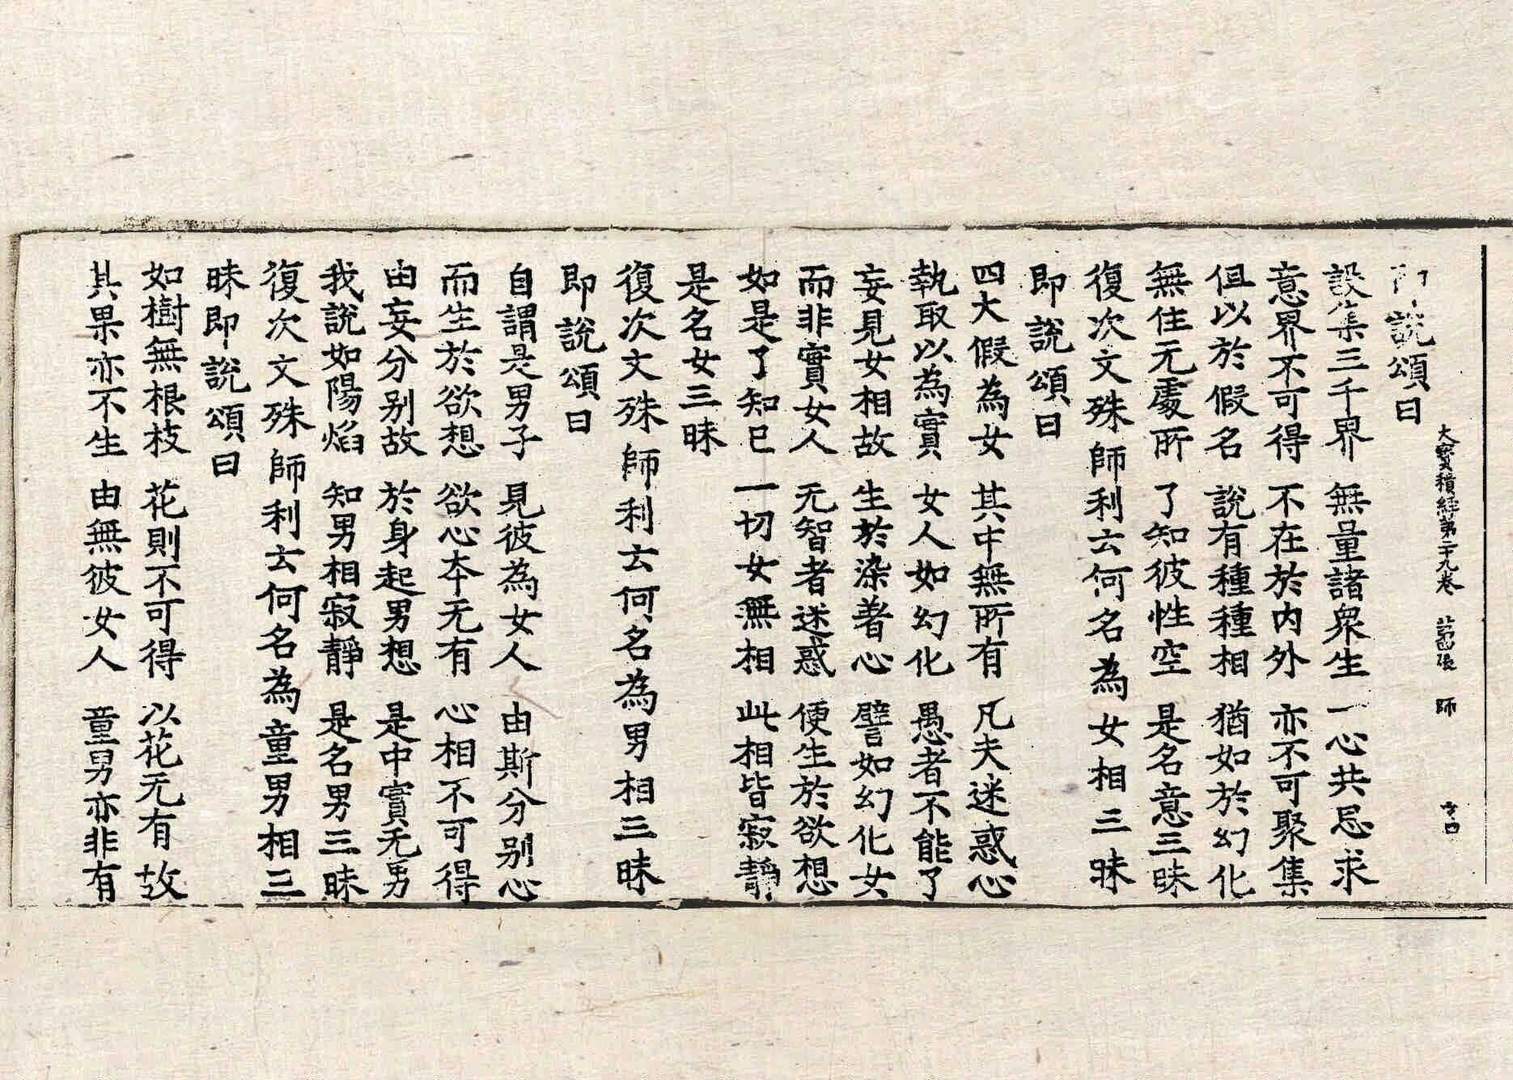 大寶積經第二十九卷 第西張 師 十四
即說頌曰
設集三千界 無量諸衆生 一心共忌求
意界不可得 不在於內外 亦不可聚集
但以於假名 說有種種相 猶如於幻化
無住无處所 了知彼性空 是名意三昧
復次文殊師利云何名為女相三昧
即說頌曰
四大假為女 其中無所有 凡夫迷惑心
執取以為實 女人如幻化 愚者不能了
妄見女相故 生於染著心 譬如幻化女
而非實女人 无智者迷惑 便生於欲想
如是了知已 一切女無相 此相皆寂靜
是名女三昧
復次文殊師利云何名為男相三昧
即說頌曰
自謂是男子 見彼為女人 由斯分別心
而生於欲想 欲心本无有 心相不可得
由妄分別故 於身起男想 是中實无男
我說如陽焰 知男相寂靜 是名男三昧
復次文殊師利云何名為童男相三
昧即說頌曰
如樹無根枝 花則不可得 以花无有故
其果亦不生 由無彼女人 童男亦非有